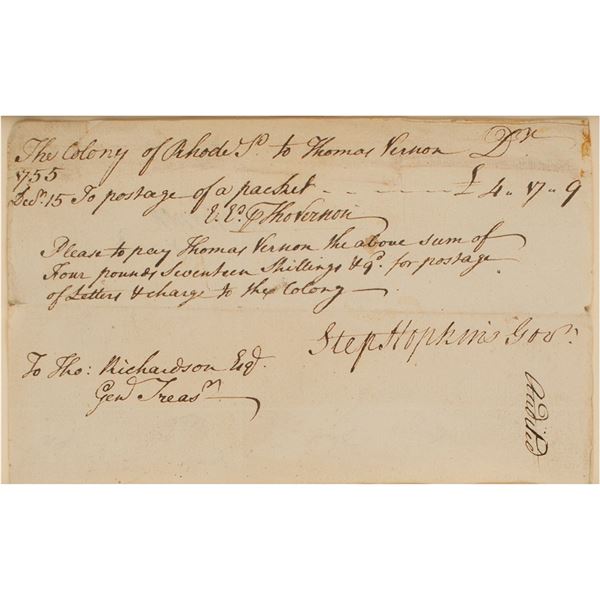 The Colony of Rhode Isd. to Thomas Vernon Dr.
1755
Decr. 15 To postage of a packet - - - - - £ 4 " 17 " 9
E. Ed. Tho Vernon
Please to pay Thomas Vernon the above sum of
Four pounds Seventeen Shillings & 9d. for postage
of Letters & charge to the Colony
Step Hopkins Govr.
To Tho: Richardson Esqr.
Genl Treasr.
Audited